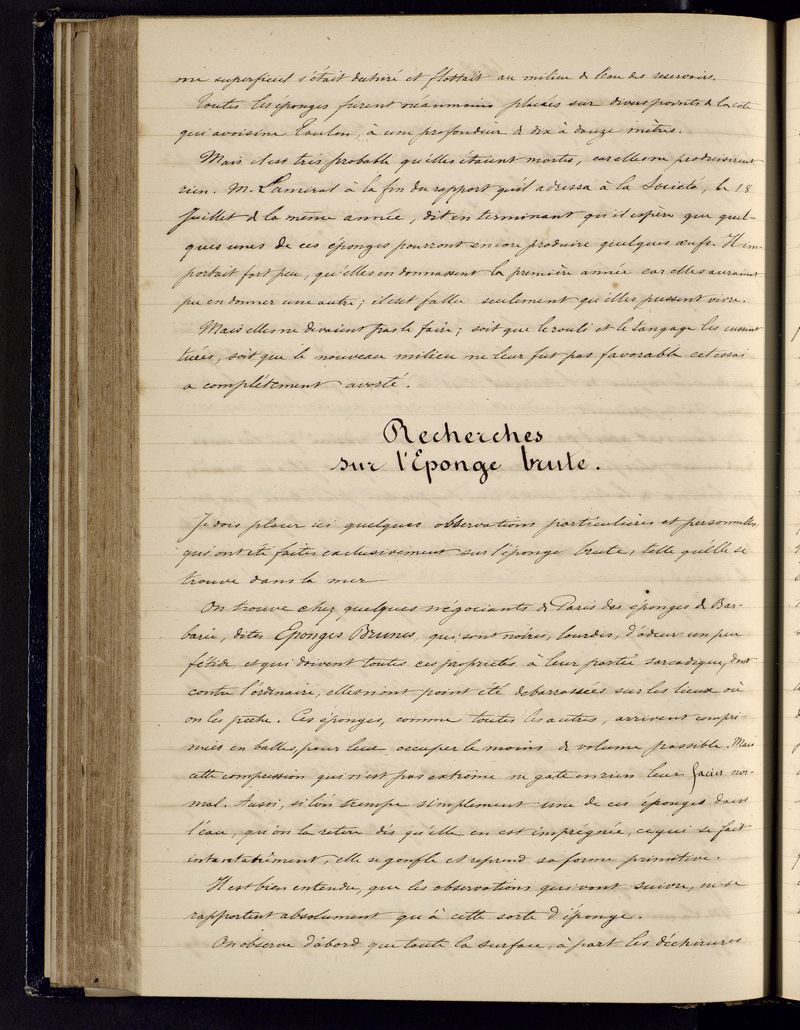 me superficiel s'était déchiré et flottait au milieu de l'eau des reservoirs.
Toutes les éponges furent néanmoins placées sur divers points de la côte
qui avoisine Toulon, à une profondeur de dix à douze mètres.
Mais il est très probable qu'elles étaient mortes, car elles ne produisirent
rien. M. Lamiral à la fin du rapport qu'il adressa à la Société, le 18
Juillet de la même année, dit en terminant qu'il espère que quel-
ques unes de ces éponges pourront encore produire quelques œufs. Il im-
portait fort peu, qu'elles en donnassent la première année car elles auraient
pu en donner une autre; il eut fallu seulement qu'elles pussent vivre.
Mais elles ne devaient pas le faire; soit que le roulis et le tangage les eussent
tuées, soit que le nouveau milieu ne leur fut pas favorable cet essai
a complètement avorté.
Recherches
sur l'Eponge brute.
Je dois placer ici quelques observations particulières et personnelles,
qui ont été faites exclusivement sur l'éponge brute, telle qu'elle se
trouve dans la mer
On trouve chez quelques négociants de Paris des éponges de Bar-
barie, dites Eponges Brunes, qui sont noires, lourdes, d'odeur un peu
fétide, et qui doivent toutes ces propriétés à leur partie sarcodique, dont
contre l'ordinaire, elles n'ont point été débarrassées sur les lieux où
on les pêche. Ces éponges, comme toutes les autres, arrivent compri-
mées en balles, pour leur occuper le moins de volume possible. Mais
cette compression qui n'est pas extrême ne gate en rien leur facies nor-
mal. Aussi, si l'on trempe simplement une de ces éponges dans
l'eau, qu'on la retire dès qu'elle en est imprégnée, ce qui se fait
instantanément, elle se gonfle et reprend sa forme primitive.
Il est bien entendu, que les observations qui vont suivre, ne se
rapportent absolument qu'à cette sorte d'éponge.
On observe d'abord que toute la surface, à part les déchirures